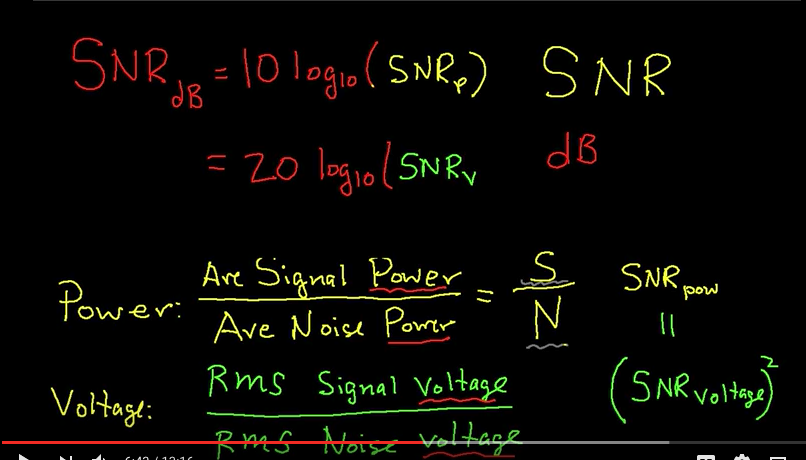 SNR dB = 10 log10 (SNRp) SNR
dB
= 20 log10 (SNRv
Power: Ave Signal Power / Ave Noise Power = S / N SNR pow
||
(SNR voltage)²
Voltage: RMS Signal voltage
RMS Noise voltage
6:42 / 12:16